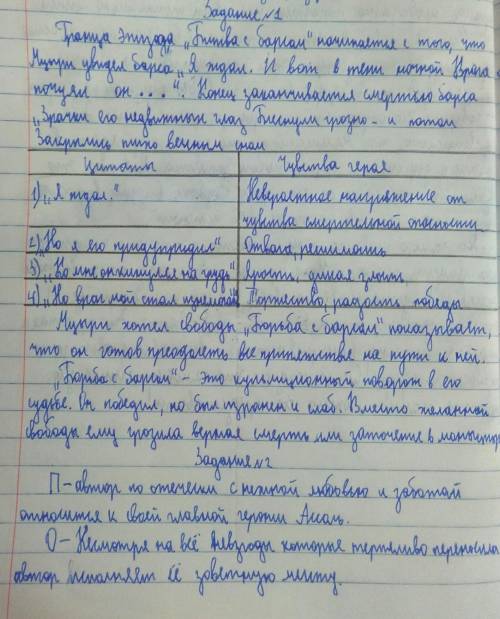 Задание №1
Граница эпизода "Битва с барсом" начинается с того, что
Мцыри увидел барса "Я ждал. И вот в тени ночной Врага
почуял он ...". Конец заканчивается смертью барса
"Зрачки его недвижных глаз Блеснули грозно - и потом
Закрылись тихо вечным сном
Цитаты Чувства героя
1) "Я ждал." Невероятное напряжение от
чувства смертельной опасности
2) "Но я его придупридил" Отвага, решимость
3) "Ко мне он кинулся на грудь" Ярость, дикая злость
4) "Но враг мой стал изнемогать" Торжество, радость победы
Мцыри хотел свободы "Борьба с барсом" показывает,
что он готов преодолеть все припятствия на пути к ней.
"Борьба с барсом" - это кульмиционный поворот в его
судьбе. Он победил, но был изранен и слаб. Вместо желанной
свободы ему грозила верная смерть или заточение в монастыре
Задание №2
П - автор по отечески с нежной любовью и заботай
относится к своей главной героини Ассоль.
О - Несмотря на всё невзгоды которые терпеливо переносила
автор исполняет её заветную мечту.